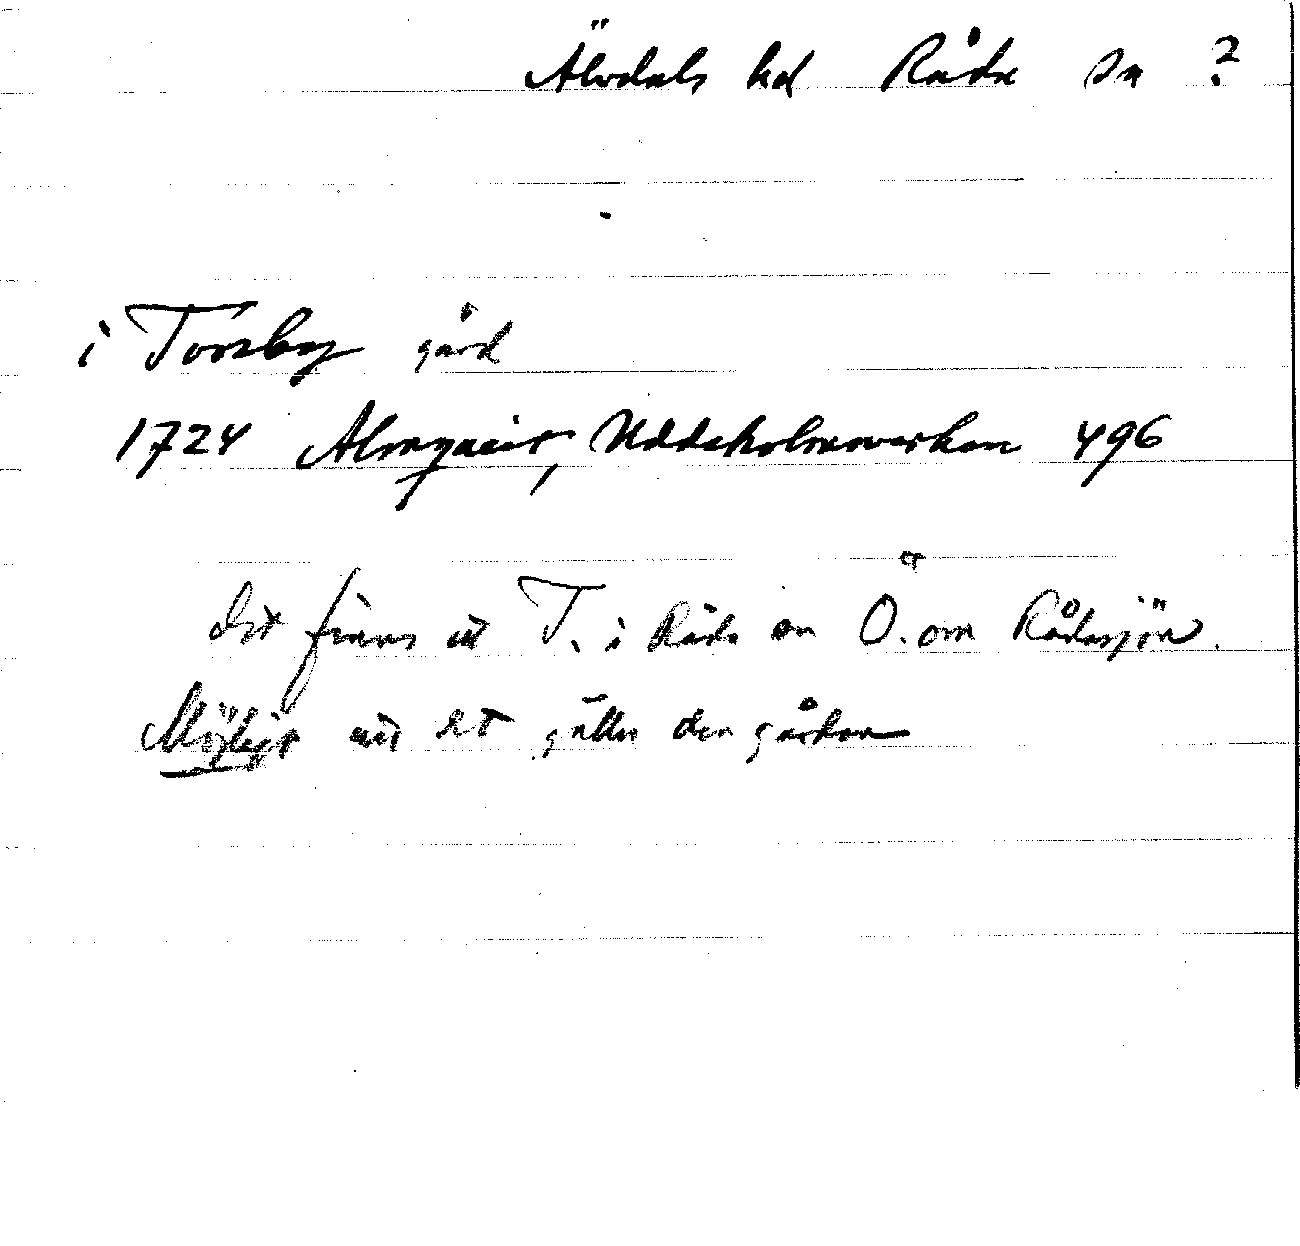 Älvdals hd Råda sn ?
i Torsby gård
1724 Almqvist, Uddeholmsverken 496
det finns ett T. i Råda sn Ö. om Rådasjön.
Möjligt att det gäller den gården